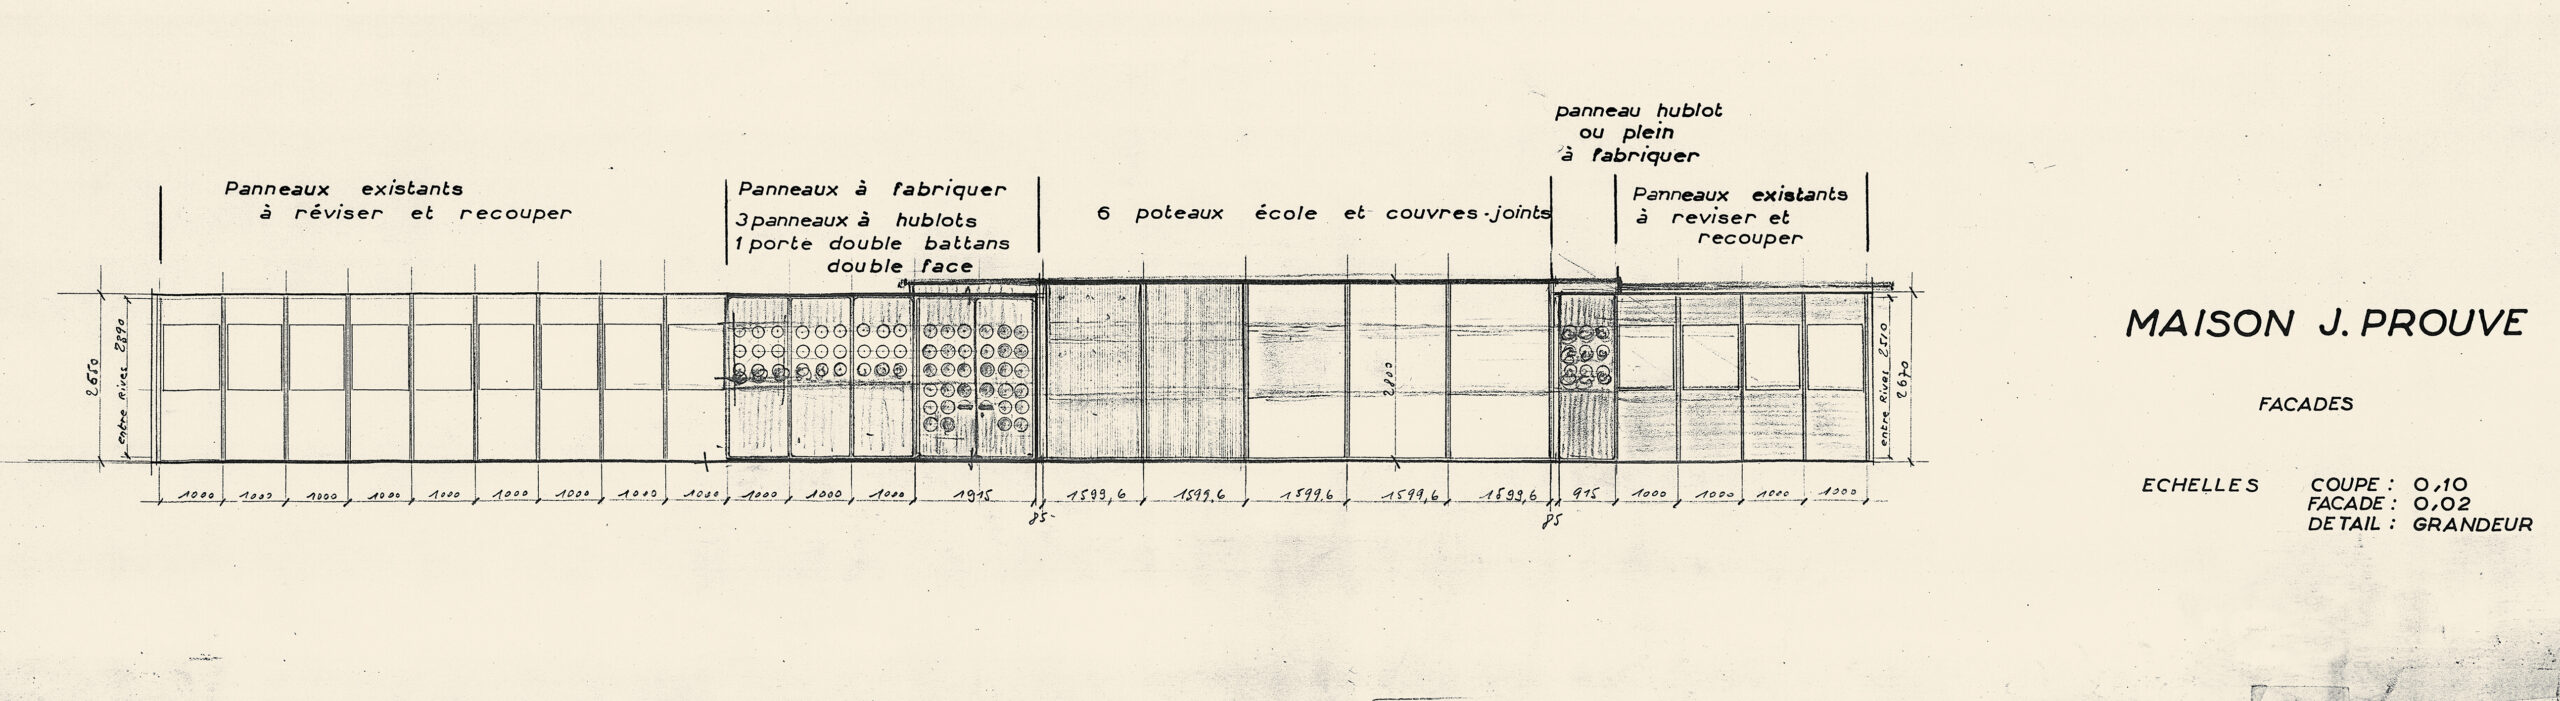 panneau hublot
ou plein
à fabriquer
Panneaux existants
à réviser et recouper
Panneaux à fabriquer
3 panneaux à hublots
1 porte double battans
double face
6 poteaux école et couvres-joints
Panneaux existants
à reviser et
recouper
2650
entre Rives
2800
entre Rives 2510
2670
1000 1000 1000 1000 1000 1000 1000 1000 1000 1000 1000 1000 1915 1599,6 1599,6 1599,6 1599,6 1599,6 915 1000 1000 1000 1000
85
85
MAISON J. PROUVE
FACADES
ECHELLES COUPE : 0,10
FACADE : 0,02
DETAIL : GRANDEUR